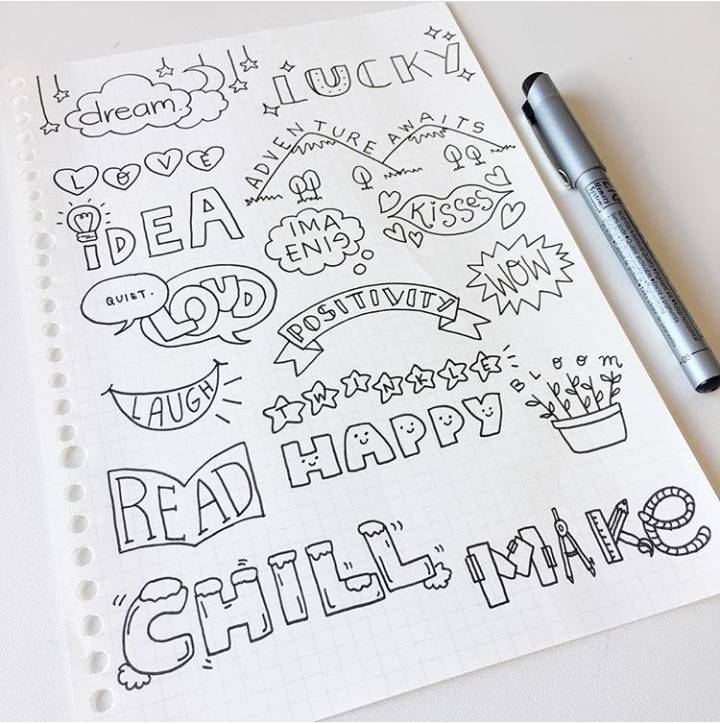 dream
LUCKY
LOVE
ADVENTURE AWAITS
iDEA
IMA
GINE
KiSSeS
QUIET.
LOUD
POSITIVITY
WOW
LAUGH
TWINKLE
HAPPY
BLOOM
READ
CHILL
MAKe